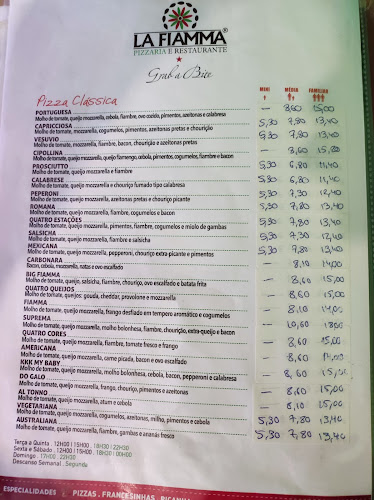 LA FIAMMA®
PIZZARIA E RESTAURANTE
Grab a Bite
Pizza Clássica
MINI MÉDIA FAMILIAR
PORTUGUESA — 8,60 15,00
Molho de tomate, queijo mozzarella, cebola, fiambre, ovo cozido, pimentos, azeitonas e calabrese
CAPRICCIOSA 5,30 7,80 13,40
Molho de tomate, mozzarella, cogumelos, pimentos, azeitonas pretas e chouriço
VESUVIO 5,30 7,80 13,40
Molho de tomate, mozzarella, fiambre, bacon, chouriço e azeitonas pretas
CIPOLLINA — 8,60
Molho de tomate, queijo mozzarella, queijo flamengo, cebola, pimentos, cogumelos, fiambre e bacon
PROSCIUTTO 5,30 6,80 11,40
Molho de tomate, queijo mozzarella e fiambre
CALABRESE 5,30 6,80 11,40
Molho de tomate, queijo mozzarella e chouriço fumado tipo calabresa
PEPERONI 5,30 7,30 12,40
Molho de tomate, queijo mozzarella, azeitonas pretas e chouriço picante
ROMANA 5,30 7,80 13,40
Molho de tomate, queijo mozzarella, fiambre, cogumelos e bacon
QUATRO ESTAÇÕES 5,30 7,80 13,40
Molho de tomate, queijo mozzarella, pimentos, fiambre, cogumelos e miolo de gambas
SALSICHA 5,30 7,30 12,40
Molho de tomate, queijo mozzarella, fiambre e salsicha
MEXICANA 5,30 7,80 13,40
Molho de tomate, queijo mozzarella, pepperoni, chouriço extra picante e pimentos
CARBONARA — 8,10 14,00
Bacon, cebola, mozzarella, natas e ovo escalfado
BIG FIAMMA — 8,60 15,00
Molho de tomate, queijo, salsichas, fiambre, chouriço, ovo escalfado e batata frita
QUATRO QUEIJOS — 8,60 15,00
Molho de tomate, queijos: gouda, cheddar, provolone e mozzarella
FIAMMA — 8,10 14,00
Molho de tomate, queijo mozzarella, frango desfiado em tempero aromático e cogumelos
SUPREMA — 10,60
Molho de tomate, queijo mozzarella, molho bolonhesa, fiambre, chouriço, extra-queijo e bacon
QUATRO CORES — 8,60 15,00
Molho de tomate, queijo mozzarella, fiambre, tomate fresco e frango
AMERICANA — 8,60 14,00
Molho de tomate, queijo mozzarella, carne picada, bacon e ovo escalfado
KKK MY BABY — 8,60 15,00
Molho de tomate, queijo mozzarella, molho bolonhesa, cebola, bacon, pepperoni e calabresa
DO GALO — 8,60 15,00
Molho de tomate, queijo mozzarella, frango, chouriço, pimentos e azeitonas
AL TONNO — 8,10 15,00
Molho de tomate, queijo mozzarella, atum e cebola
VEGETARIANA 5,30 7,80 13,40
Molho de tomate, queijo mozzarella, cogumelos, azeitonas, milho, pimentos e cebola
AUSTRALIANA 5,30 7,80 13,40
Molho de tomate, queijo mozzarella, fiambre, gambas e ananás fresco
Terça a Quinta . 12H00 | 15H00 . 18H30 | 22H30
Sexta e Sábado . 12H00 | 15H00 . 18H30 | 00H00
Domingo . 17H00 | 22H30
Descanso Semanal . Segunda
ESPECIALIDADES | PIZZAS . FRANCESINHAS